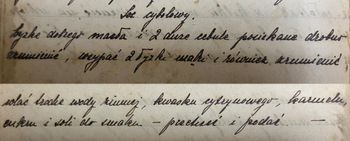 Sos cybulowy.
Łyżkę dobrego masła i 2 duże cebule posiekane drobno
zrumienić, wsypać 2 łyżki mąki i również zrumienić
wlać trochę wody zimnej, kwasku cytrynowego, karmelu,
cukru i soli do smaku – przetrzeć i podać –